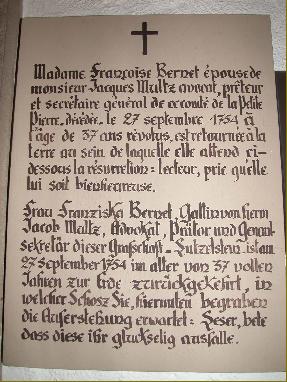 Madame Françoise Bernet épouse de
monsieur Jacques Maltz avocat, préteur
et secrétaire général de ce comté de la Petite
Pierre, décédée le 27 septembre 1754 à
l'âge de 37 ans révolus, est retournée à la
terre au sein de laquelle elle attend ci-
dessous la résurrection: lecteur, prie qu'elle
lui soit bienheureuse.
Frau Franziska Bernet, Gattin von Herrn
Jacob Maltz, Advokat, Prätor und General-
sekretär dieser Grafschaft - Lützelstein, ist am
27 September 1754 im alter von 37 vollen
Jahren zur Erde zurückgekehrt, in
welcher Schosz Sie, hierunten begraben
die Auferstehung erwartet: Leser, bete
dass diese ihr glückselig ausfalle.